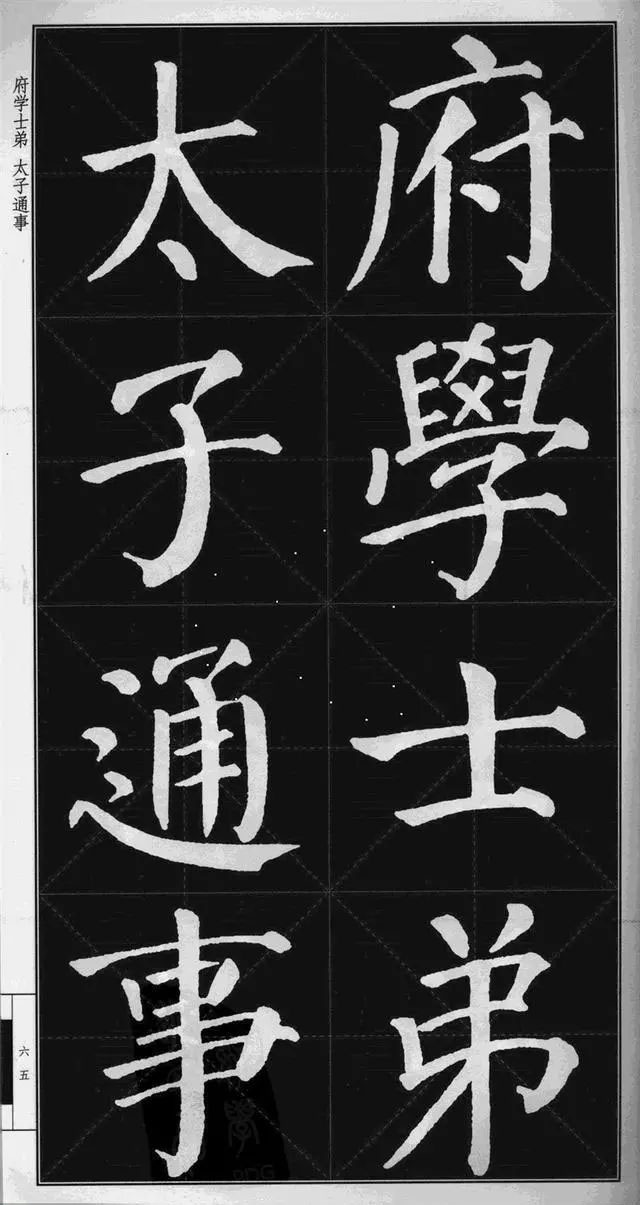 府學士弟
太子通事
府学士弟 太子通事
六五